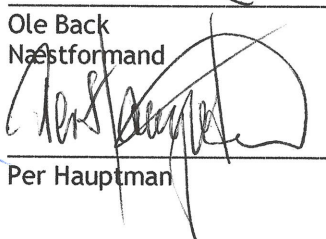 Ole Back
Næstformand
Per Hauptman